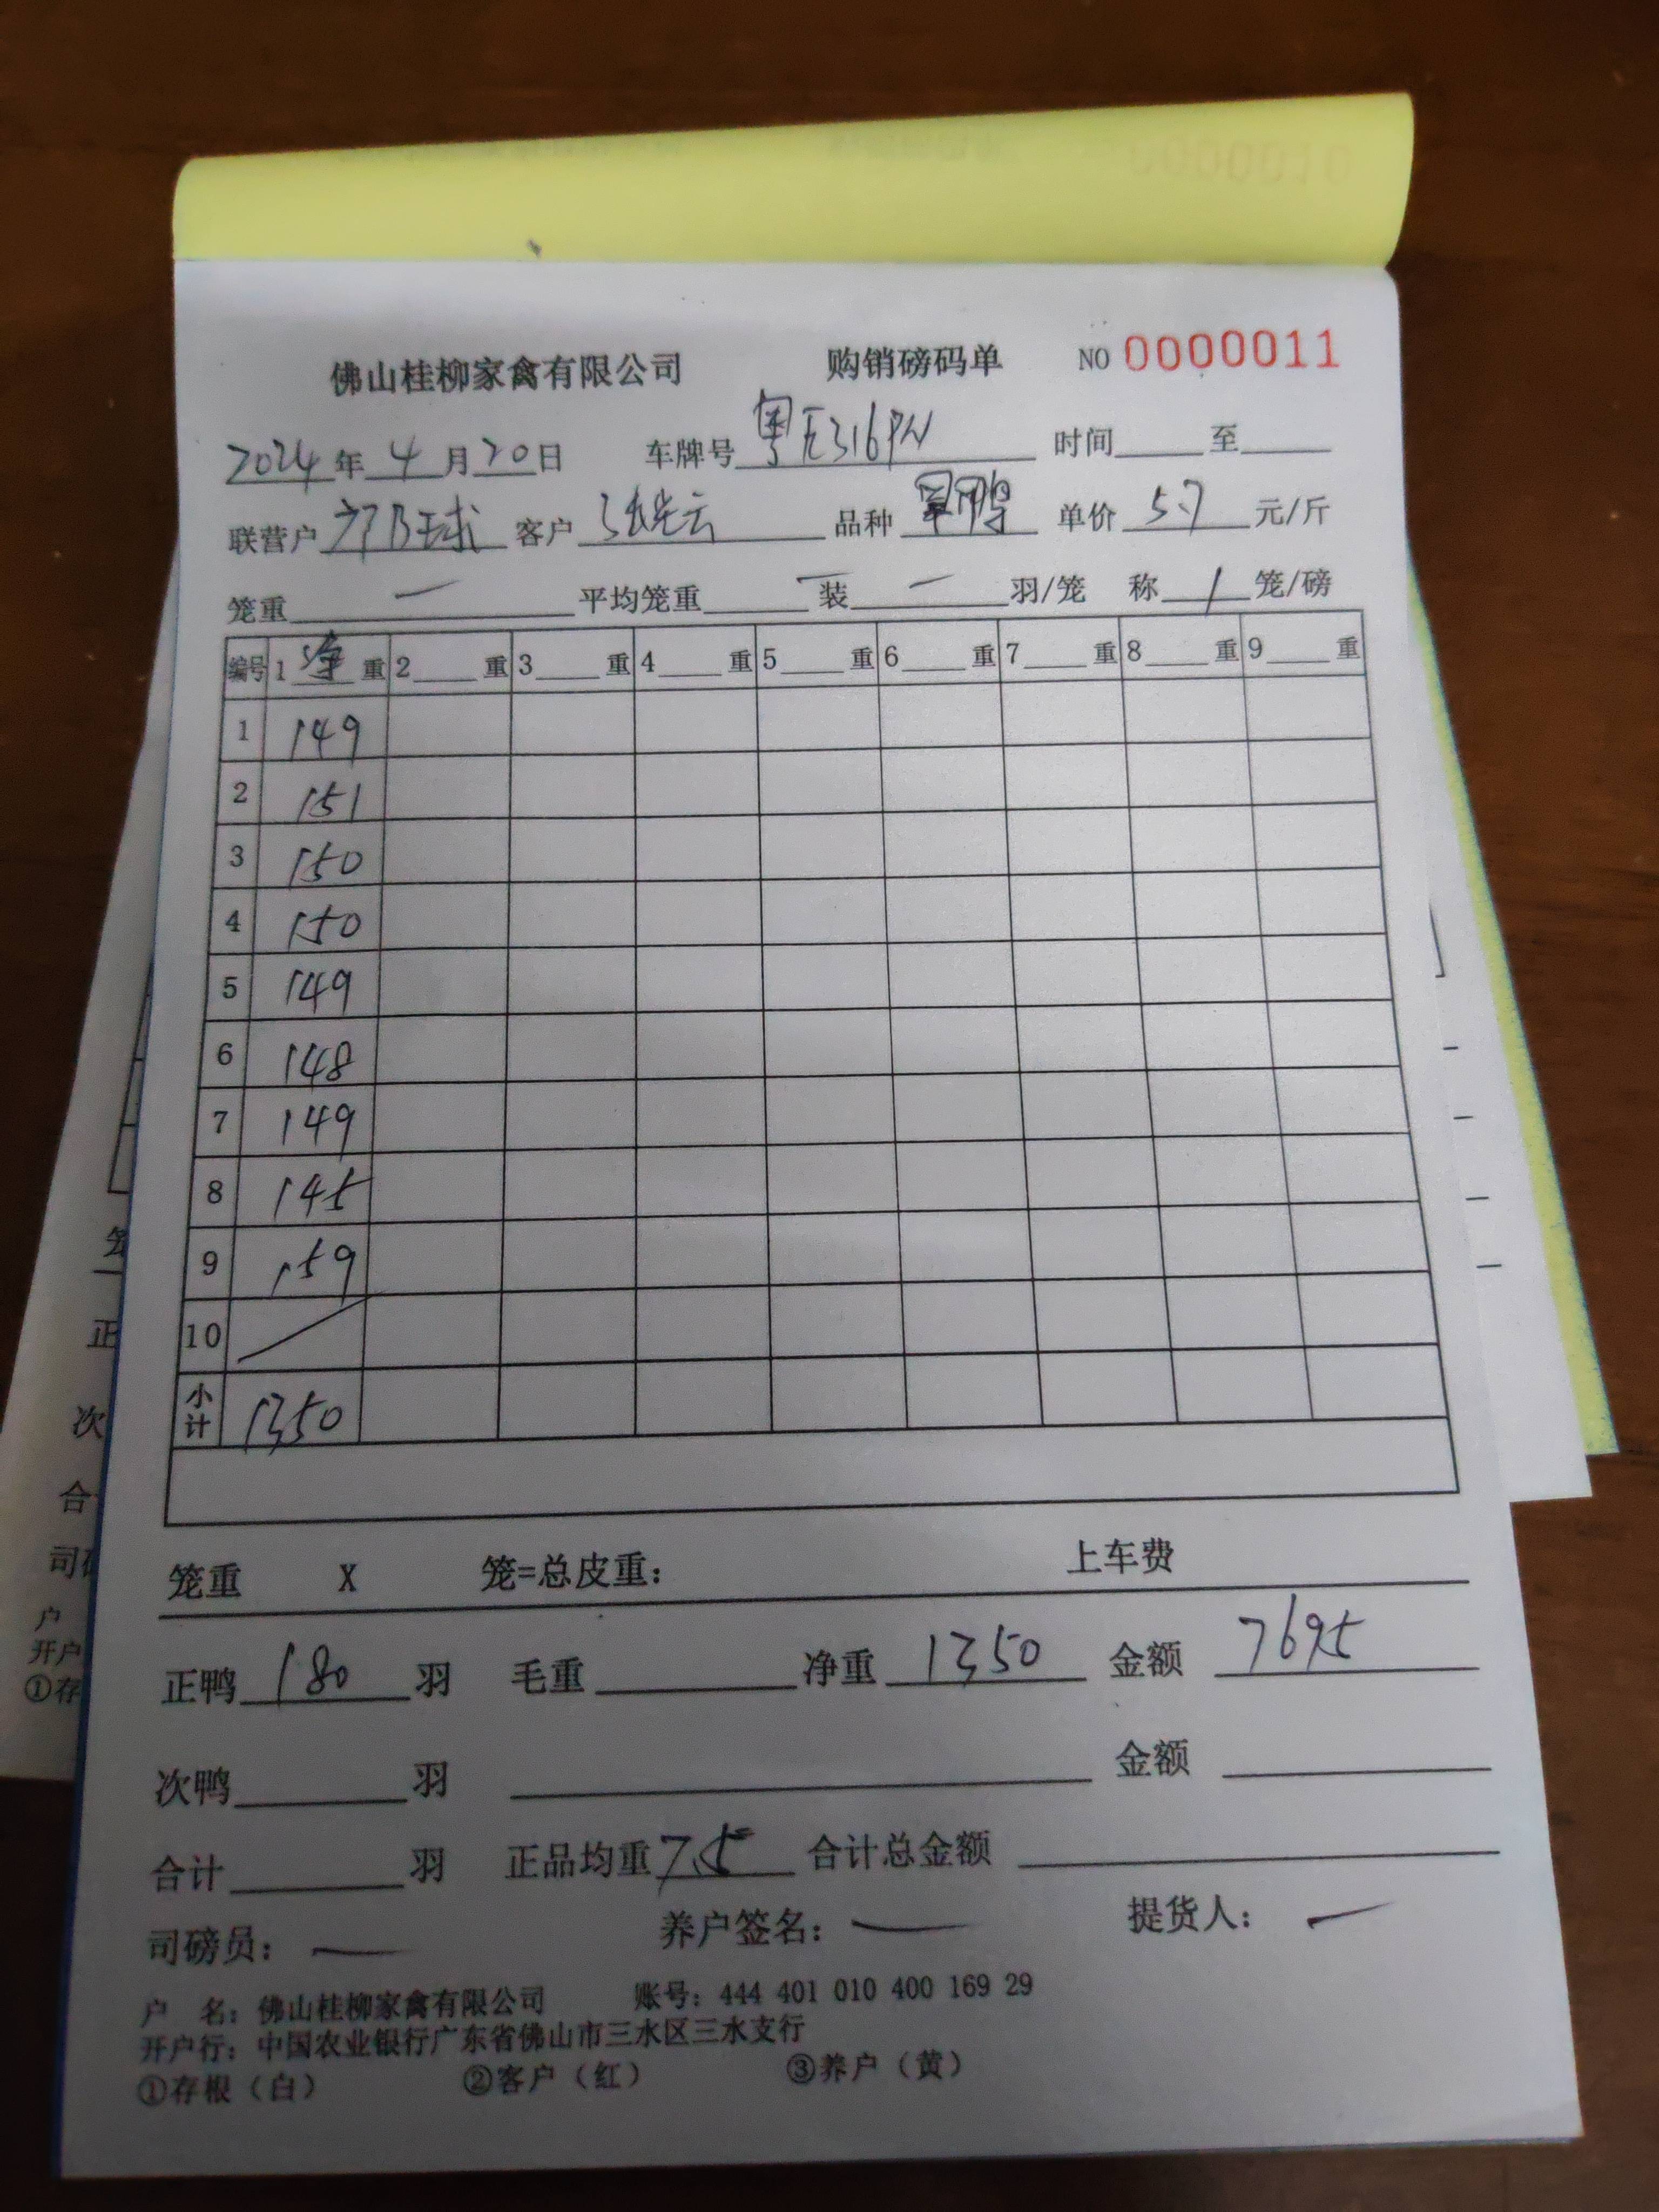 佛山桂柳家禽有限公司 购销磅码单 NO 0000011
2024年 4月20日 车牌号 粤E316PN 时间 至
联营户 球 客户 张 云 品种 鸭 单价 5.7 元/斤
笼重 一 平均笼重 一 装 一 羽/笼 称 1 笼/磅
编号 1 净 重 2 重 3 重 4 重 5 重 6 重 7 重 8 重 9 重
1 149
2 151
3 150
4 150
5 149
6 148
7 149
8 145
9 159
10 /
小计 1350
笼重 X 笼=总皮重: 上车费
正鸭 180 羽 毛重 净重 1350 金额 7695
次鸭 羽 金额
合计 羽 正品均重 7.5 合计总金额
司磅员: 一 养户签名: 一 提货人: 一
户 名: 佛山桂柳家禽有限公司 账号: 444 401 010 400 169 29
开户行: 中国农业银行广东省佛山市三水区三水支行
①存根(白) ②客户(红) ③养户(黄)
笼
正
次
合
司
户
开户
①存